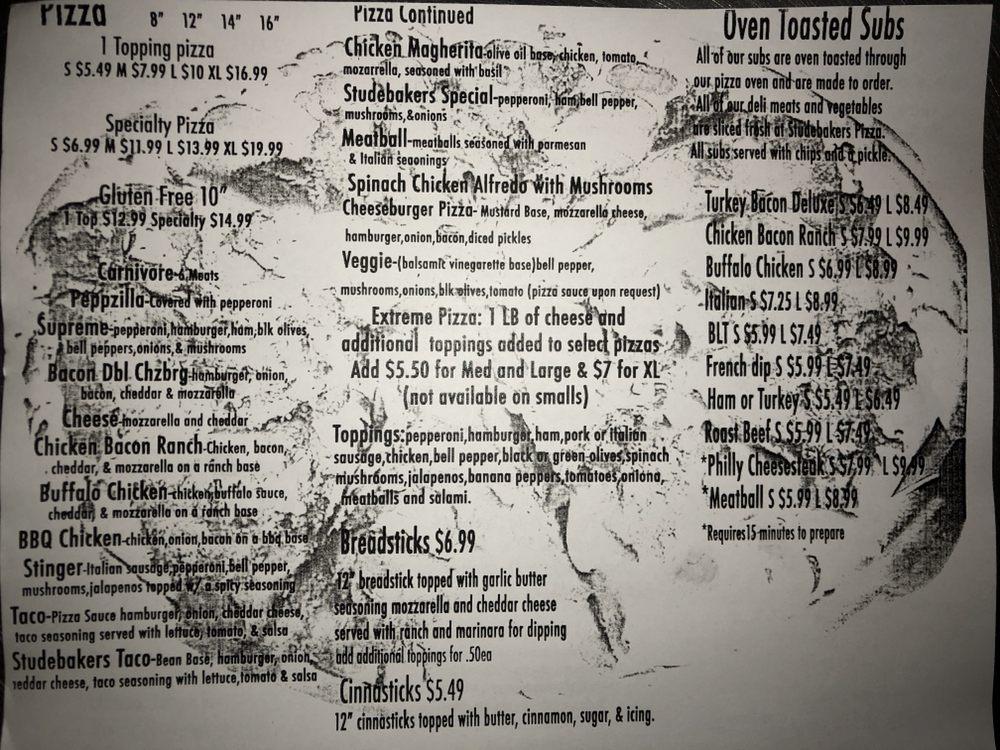 Pizza 8" 12" 14" 16"
1 Topping pizza
S $5.49 M $7.99 L $10 XL $16.99
Specialty Pizza
S $6.99 M $11.99 L $13.99 XL $19.99
Gluten Free 10"
1 Top $12.99 Specialty $14.99
Carnivore-6 Meats
Peppzilla-Covered with pepperoni
Supreme-pepperoni,hamburger,ham,blk olives,
bell peppers,onions,& mushrooms
Bacon Dbl Chzbrg-hamburger, onion,
bacon, cheddar & mozzarella
Cheese-mozzarella and cheddar
Chicken Bacon Ranch-Chicken, bacon,
cheddar, & mozzarella on a ranch base
Buffalo Chicken-chicken,buffalo sauce,
cheddar, & mozzarella on a ranch base
BBQ Chicken-chicken,onion,bacon on a bbq base
Stinger-Italian sausage,pepperoni,bell pepper,
mushrooms,jalapenos topped w/ a spicy seasoning
Taco-Pizza Sauce hamburger, onion, cheddar cheese,
taco seasoning served with lettuce, tomato, & salsa
Studebakers Taco-Bean Base, hamburger, onion,
eddar cheese, taco seasoning with lettuce,tomato & salsa
Pizza Continued
Chicken Magherita-olive oil base, chicken, tomato,
mozarrella, seasoned with basil
Studebakers Special-pepperoni, ham,bell pepper,
mushrooms,&onions
Meatball-meatballs seasoned with parmesan
& Italian seaonings
Spinach Chicken Alfredo with Mushrooms
Cheeseburger Pizza- Mustard Base, mozzarella cheese,
hamburger,onion,bacon,diced pickles
Veggie-(balsamit vinegarette base)bell pepper,
mushrooms,onions,blk olives,tomato (pizza sauce upon request)
Extreme Pizza: 1 LB of cheese and
additional toppings added to select pizzas
Add $5.50 for Med and Large & $7 for XL
(not available on smalls)
Toppings:pepperoni,hamburger,ham,pork or italian
sausage,chicken,bell pepper,black or green olives,spinach
mushrooms,jalapenos,banana peppers,tomatoes,onions,
meatballs and salami.
Breadsticks $6.99
12" breadstick topped with garlic butter
seasoning mozzarella and cheddar cheese
served with ranch and marinara for dipping
add additional toppings for .50ea
Cinnasticks $5.49
12" cinnasticks topped with butter, cinnamon, sugar, & icing.
Oven Toasted Subs
All of our subs are oven toasted through
our pizza oven and are made to order.
All of our deli meats and vegetables
are sliced fresh at Studebakers Pizza.
All subs served with chips and a pickle.
Turkey Bacon Deluxe S $6.49 L $8.49
Chicken Bacon Ranch S $7.99 L $9.99
Buffalo Chicken S $6.99 L $8.99
Italian S $7.25 L $8.99
BLT S $5.99 L $7.49
French dip S $5.99 L $7.49
Ham or Turkey S $5.49 L $6.49
Roast Beef S $5.99 L $7.49
*Philly Cheesesteak S $7.99 L $9.99
*Meatball S $5.99 L $8.99
*Requires 15 minutes to prepare